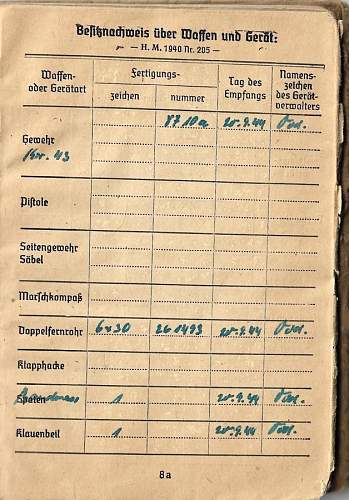 Besitznachweis über Waffen und Gerät:
— H. M. 1940 Nr. 205 —
Waffen- oder Gerätart
Fertigungs-
zeichen
nummer
Tag des Empfangs
Namens- zeichen des Gerät- verwalters
Gewehr 8710a 20.9.44
Kar. 43
Pistole
Seitengewehr
Säbel
Marschkompaß
Doppelfernrohr 6x30 261493 20.9.44
Klapphacke
Spaten 1 20.9.44
Klauenbeil 1 20.9.44
8a